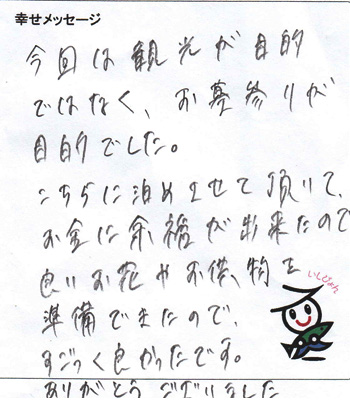 幸せメッセージ
今回は観光が目的
ではなく、お墓参りが
目的でした。
こちらに泊めませて頂いて、
お金に余福が出来たので
良いお花やお供、物を
準備できたので、
すごっく良かったです。
ありがとうございました
いしぴょん